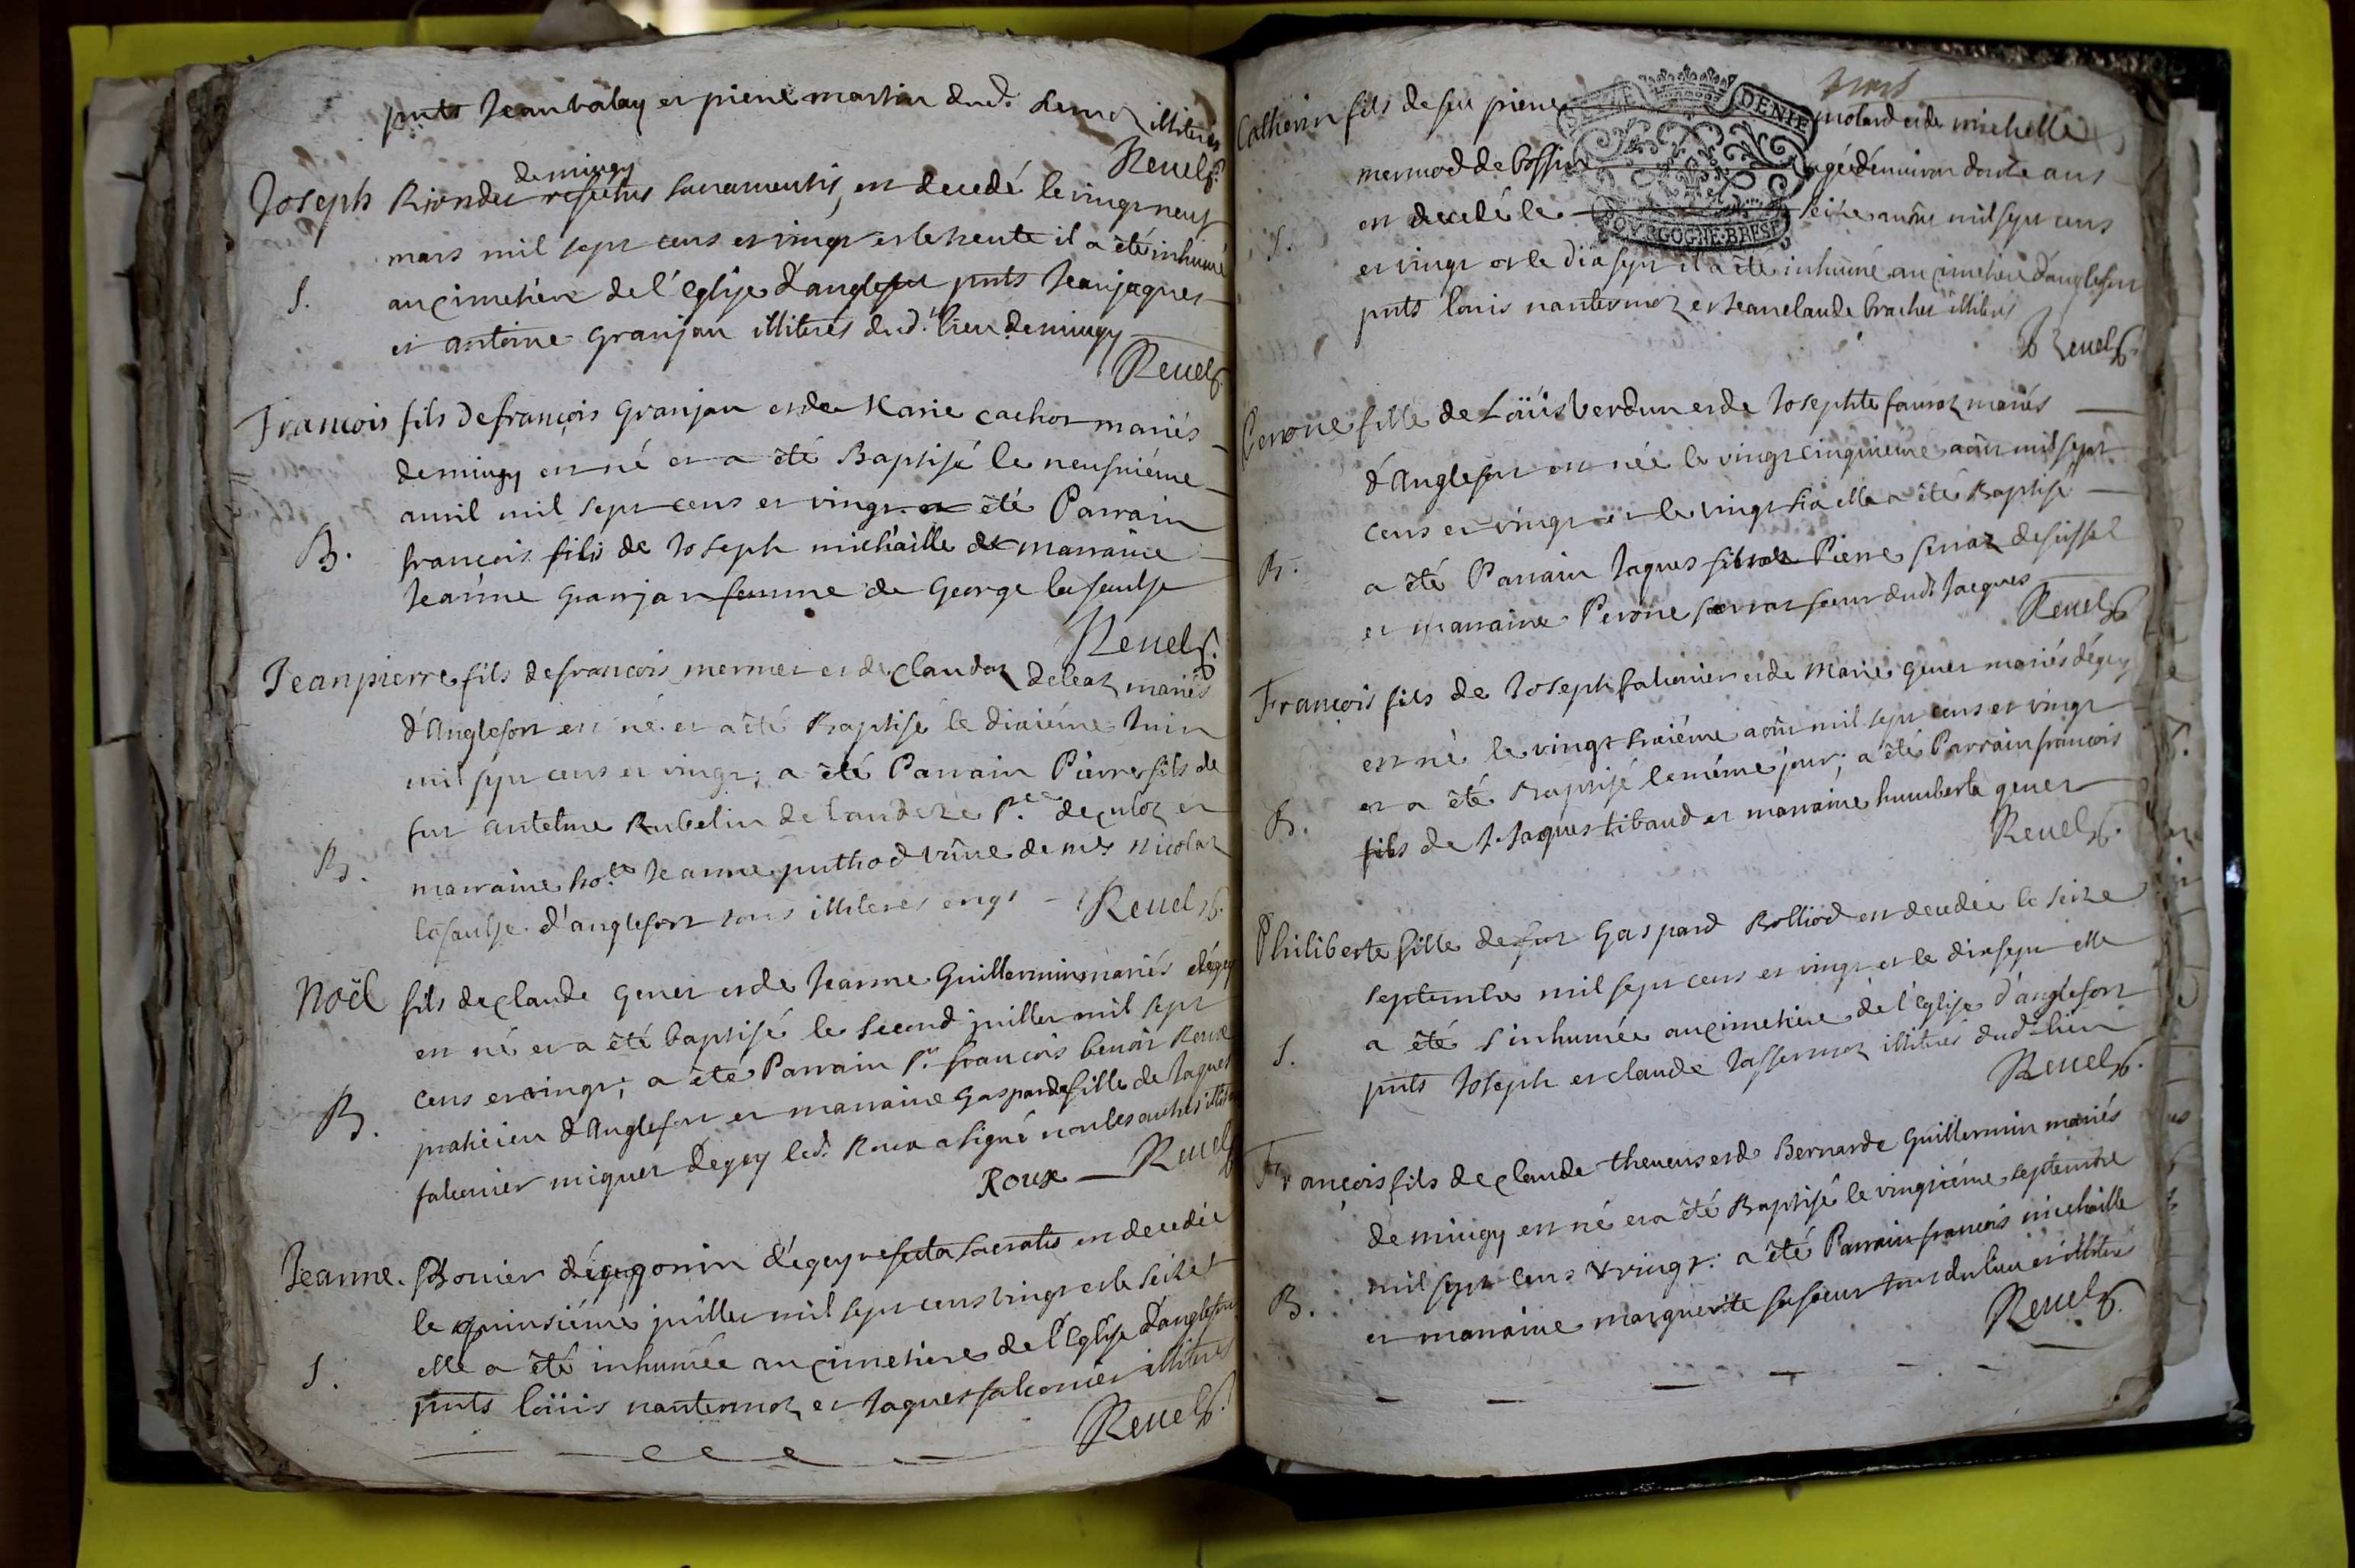 pnts Jean balay et pierre martin dud. illiteres
Reuel
de mingy
Joseph Riondet refectus sacramentis, est decedé le vingt neuf
mars mil sept cens et vingt et le trente il a été inhumé
S. au cimetiere de l'Eglise d'anglefort pnts Jean jaques
et antoine granjan illiteres dud. lieu de mingy
Reuel
Francois fils de françois granjan et de Marie cachot mariés
de mingy est né et a été Baptisé le neufviéme
auril mil sept cens et vingt et été Parrain
B. françois fils de Joseph michaille et marraine
Jeanne granjan femme de George lafaulse
Reuel
Jeanpierre fils de francois mermet et de Claudaz deleaz mariés
d'Anglefort est né et a été Baptisé le dixiéme Juin
mil sept cens et vingt; a été Parrain Pierre fils de
feu antelme Rubelin de landeze P.sse de culoz et
B. marraine ho.te Jeanne puthod vefue de me Nicolas
lafaulse d'anglefort tous illiteres enqs - Reuel
Noël fils de claude genet et de Jeanne Guillermin mariés dégey
est né et a été baptisé le second juillet mil sept
cens et vingt; a été Parrain Sr. francois benoit Roux
B. praticien d'Anglefort et marraine gasparde fille de Jaques
falconier miguet dégey led. Roux a signé non les autres illiteres
Roux Reuel
Jeanne. Bouier dégey refecta sacratis est decedée
le quinsiéme juillet mil sept cens vingt et le seize
S. elle a été inhumée au cimetiere de l'Eglise d'anglefort
pnts loüis nantermoz et Jaques falconier illiteres
Reuel
Catherin fils de feu pierre motard et de michelle
mermod de agé d'enuiron douze ans
S. est decedé le seize août mil sept cens
et vingt et le dix sept il a été inhumé au cimetiere d'anglefort
pnts louis nantermoz et Jeanclaude brachet illiteres
Reuel
Perone fille de Loüis Verdun et de Josephte mariés
d'Anglefort est née le vingt cinquiéme août mil sept
cens et vingt et le vingt six elle a été Baptisé
B. a été Parrain Jaques fils de Pierre serraz de seissel
et marraine Perone serraz soeur dudt Jacques
Reuel
François fils de Joseph falconier et de Marie genet mariés dégey
est né le vingt sixiéme août mil sept cens et vingt
et a été Baptisé le méme jour; a été Parrain francois
B. fils de Jaques tibaud et marraine humberte genet
Reuel
Philiberte fille de feu Gaspard Rolliod est decedée le seize
septembre mil sept cens et vingt et le dix sept elle
S. a été inhumée au cimetiere de l'Eglise d'anglefort
pnts Joseph et claude Jassermoz illiteres dud. lieu
Reuel
François fils de claude theuenet et de Bernarde Guillermin mariés
de mingy est né et a été Baptisé le vingtiéme septembre
mil sept cens & vingt: a été Parrain francois michaille
B. et marraine marguerite sa soeur tous du lieu et illiteres
Reuel